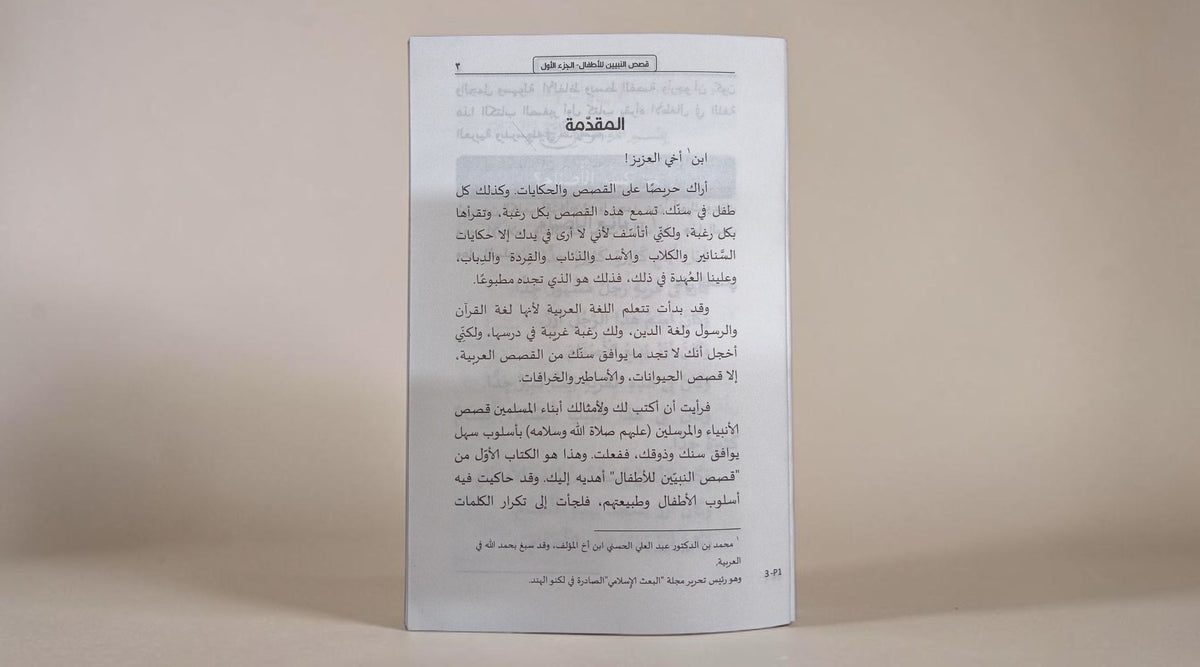 قصص النبيين للأطفال- الجزء الأول
٣
المقدّمة
ابن١ أخي العزيز !
أراك حريصًا على القصص والحكايات. وكذلك كل
طفل في سنّك، تسمع هذه القصص بكل رغبة، وتقرأها
بكل رغبة، ولكنّي أتأسّف لأني لا أرى في يدك إلا حكايات
السَّنانير والكلاب والأسد والذئاب والقِردة والدِباب،
وعلينا العُهدة في ذلك، فذلك هو الذي تجده مطبوعًا.
وقد بدأت تتعلم اللغة العربية لأنها لغة القرآن
والرسول ولغة الدين، ولك رغبة غريبة في درسها، ولكنّي
أخجل أنك لا تجد ما يوافق سنّك من القصص العربية،
إلا قصص الحيوانات، والأساطير والخرافات.
فرأيت أن أكتب لك ولأمثالك أبناء المسلمين قصص
الأنبياء والمرسلين (عليهم صلاة الله وسلامه) بأسلوب سهل
يوافق سنك وذوقك، ففعلت. وهذا هو الكتاب الأوّل من
"قصص النبيّين للأطفال" أهديه إليك. وقد حاكيت فيه
أسلوب الأطفال وطبيعتهم، فلجأت إلى تكرار الكلمات
١ محمد بن الدكتور عبد العلي الحسني ابن أخ المؤلف، وقد سبغ بحمد الله في
العربية.
وهو رئيس تحرير مجلة "البعث الإسلامي"الصادرة في لكنو الهند.
3 -P1